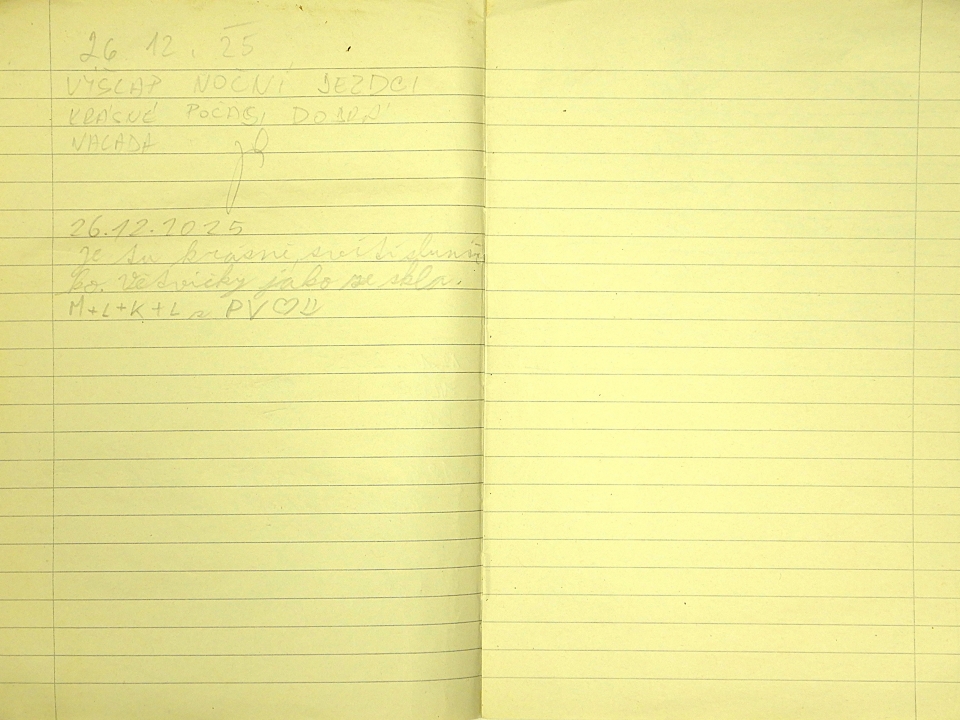 26. 12. 25
VÝŠLAP NOČNÍ JEZDCI
KRÁSNÉ POČASÍ, DOBRÁ
NÁLADA
26.12.2025
Je tu krásně, svítí sluníč
ko. Větvičky jako ze skla.
M+L+K+L z PV ♡